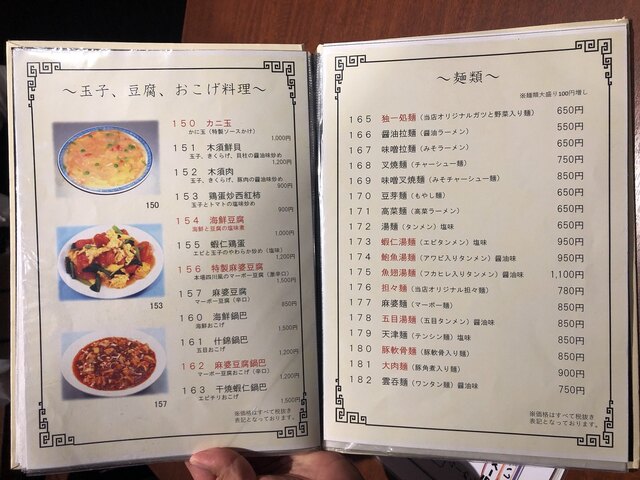 ～玉子、豆腐、おこげ料理～
150 カニ玉
かに玉（特製ソースかけ）
1,000円
151 木須鮮貝
玉子、きくらげ、貝柱の醤油味炒め
1,200円
152 木須肉
玉子、きくらげ、豚肉の醤油味炒め
900円
153 鶏蛋炒西紅柿
玉子とトマトの塩味炒め
900円
154 海鮮豆腐
海鮮と豆腐の塩味煮
1,000円
155 蝦仁鶏蛋
エビと玉子のやわらか炒め（塩味）
1,200円
156 特製麻婆豆腐
本場四川風のマーボー豆腐（激辛口）
1,500円
157 麻婆豆腐
マーボー豆腐（辛口）
850円
160 海鮮鍋巴
海鮮おこげ
1,500円
161 什錦鍋巴
五目おこげ
1,200円
162 麻婆豆腐鍋巴
マーボー豆腐おこげ（辛口）
1,200円
163 干焼蝦仁鍋巴
エビチリおこげ
1,500円
※価格はすべて税抜き
表記となっております。
150
153
157
～麺類～
※麺類大盛り100円増し
165 独一処麺（当店オリジナルガツと野菜入り麺） 650円
166 醤油拉麺（醤油ラーメン） 550円
167 味噌拉麺（みそラーメン） 650円
168 叉焼麺（チャーシュー麺） 750円
169 味噌叉焼麺（みそチャーシュー麺） 850円
170 豆芽麺（もやし麺） 650円
171 高菜麺（高菜ラーメン） 650円
172 湯麺（タンメン）塩味 650円
173 蝦仁湯麺（エビタンメン）塩味 950円
174 鮑魚湯麺（アワビ入りタンメン）醤油味 950円
175 魚翅湯麺（フカヒレ入りタンメン）醤油味 1,100円
176 担々麺（当店オリジナル担々麺） 780円
177 麻婆麺（マーボー麺） 850円
178 五目湯麺（五目タンメン）醤油味 850円
179 天津麺（テンシン麺）塩味 850円
180 豚軟骨麺（豚軟骨入り麺） 850円
181 大肉麺（豚角煮入り麺） 900円
182 雲呑麺（ワンタン麺）醤油味 750円
※価格はすべて税抜き
表記となっております。